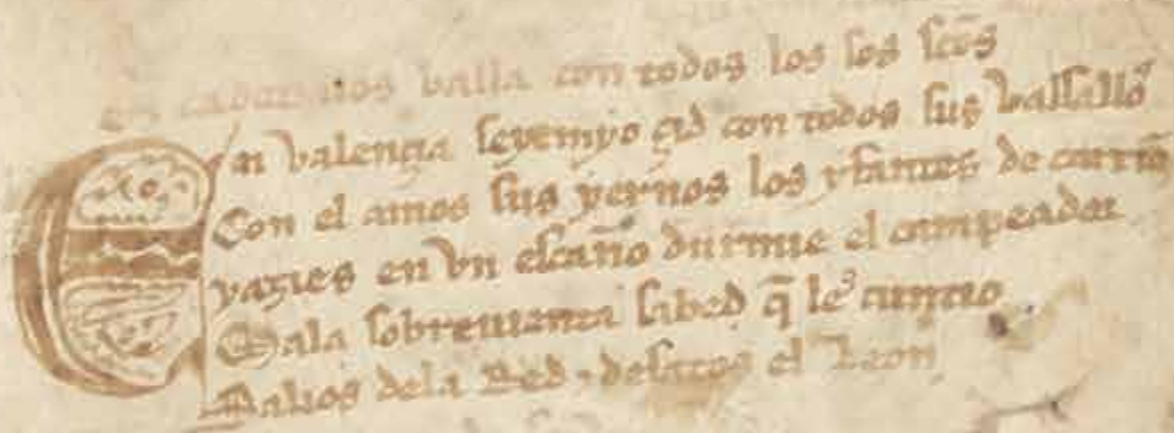 uos valla con todos los sos scõs
En valençia seye myo çid con todos sus vassallos
Con el amos sus yernos los yfantes de carriõ
yazies en vn escaño durmie el campeador
Mala sobreuienta sabed q̃ les cuntio
Salios dela Red ⁊ desatos el Leon